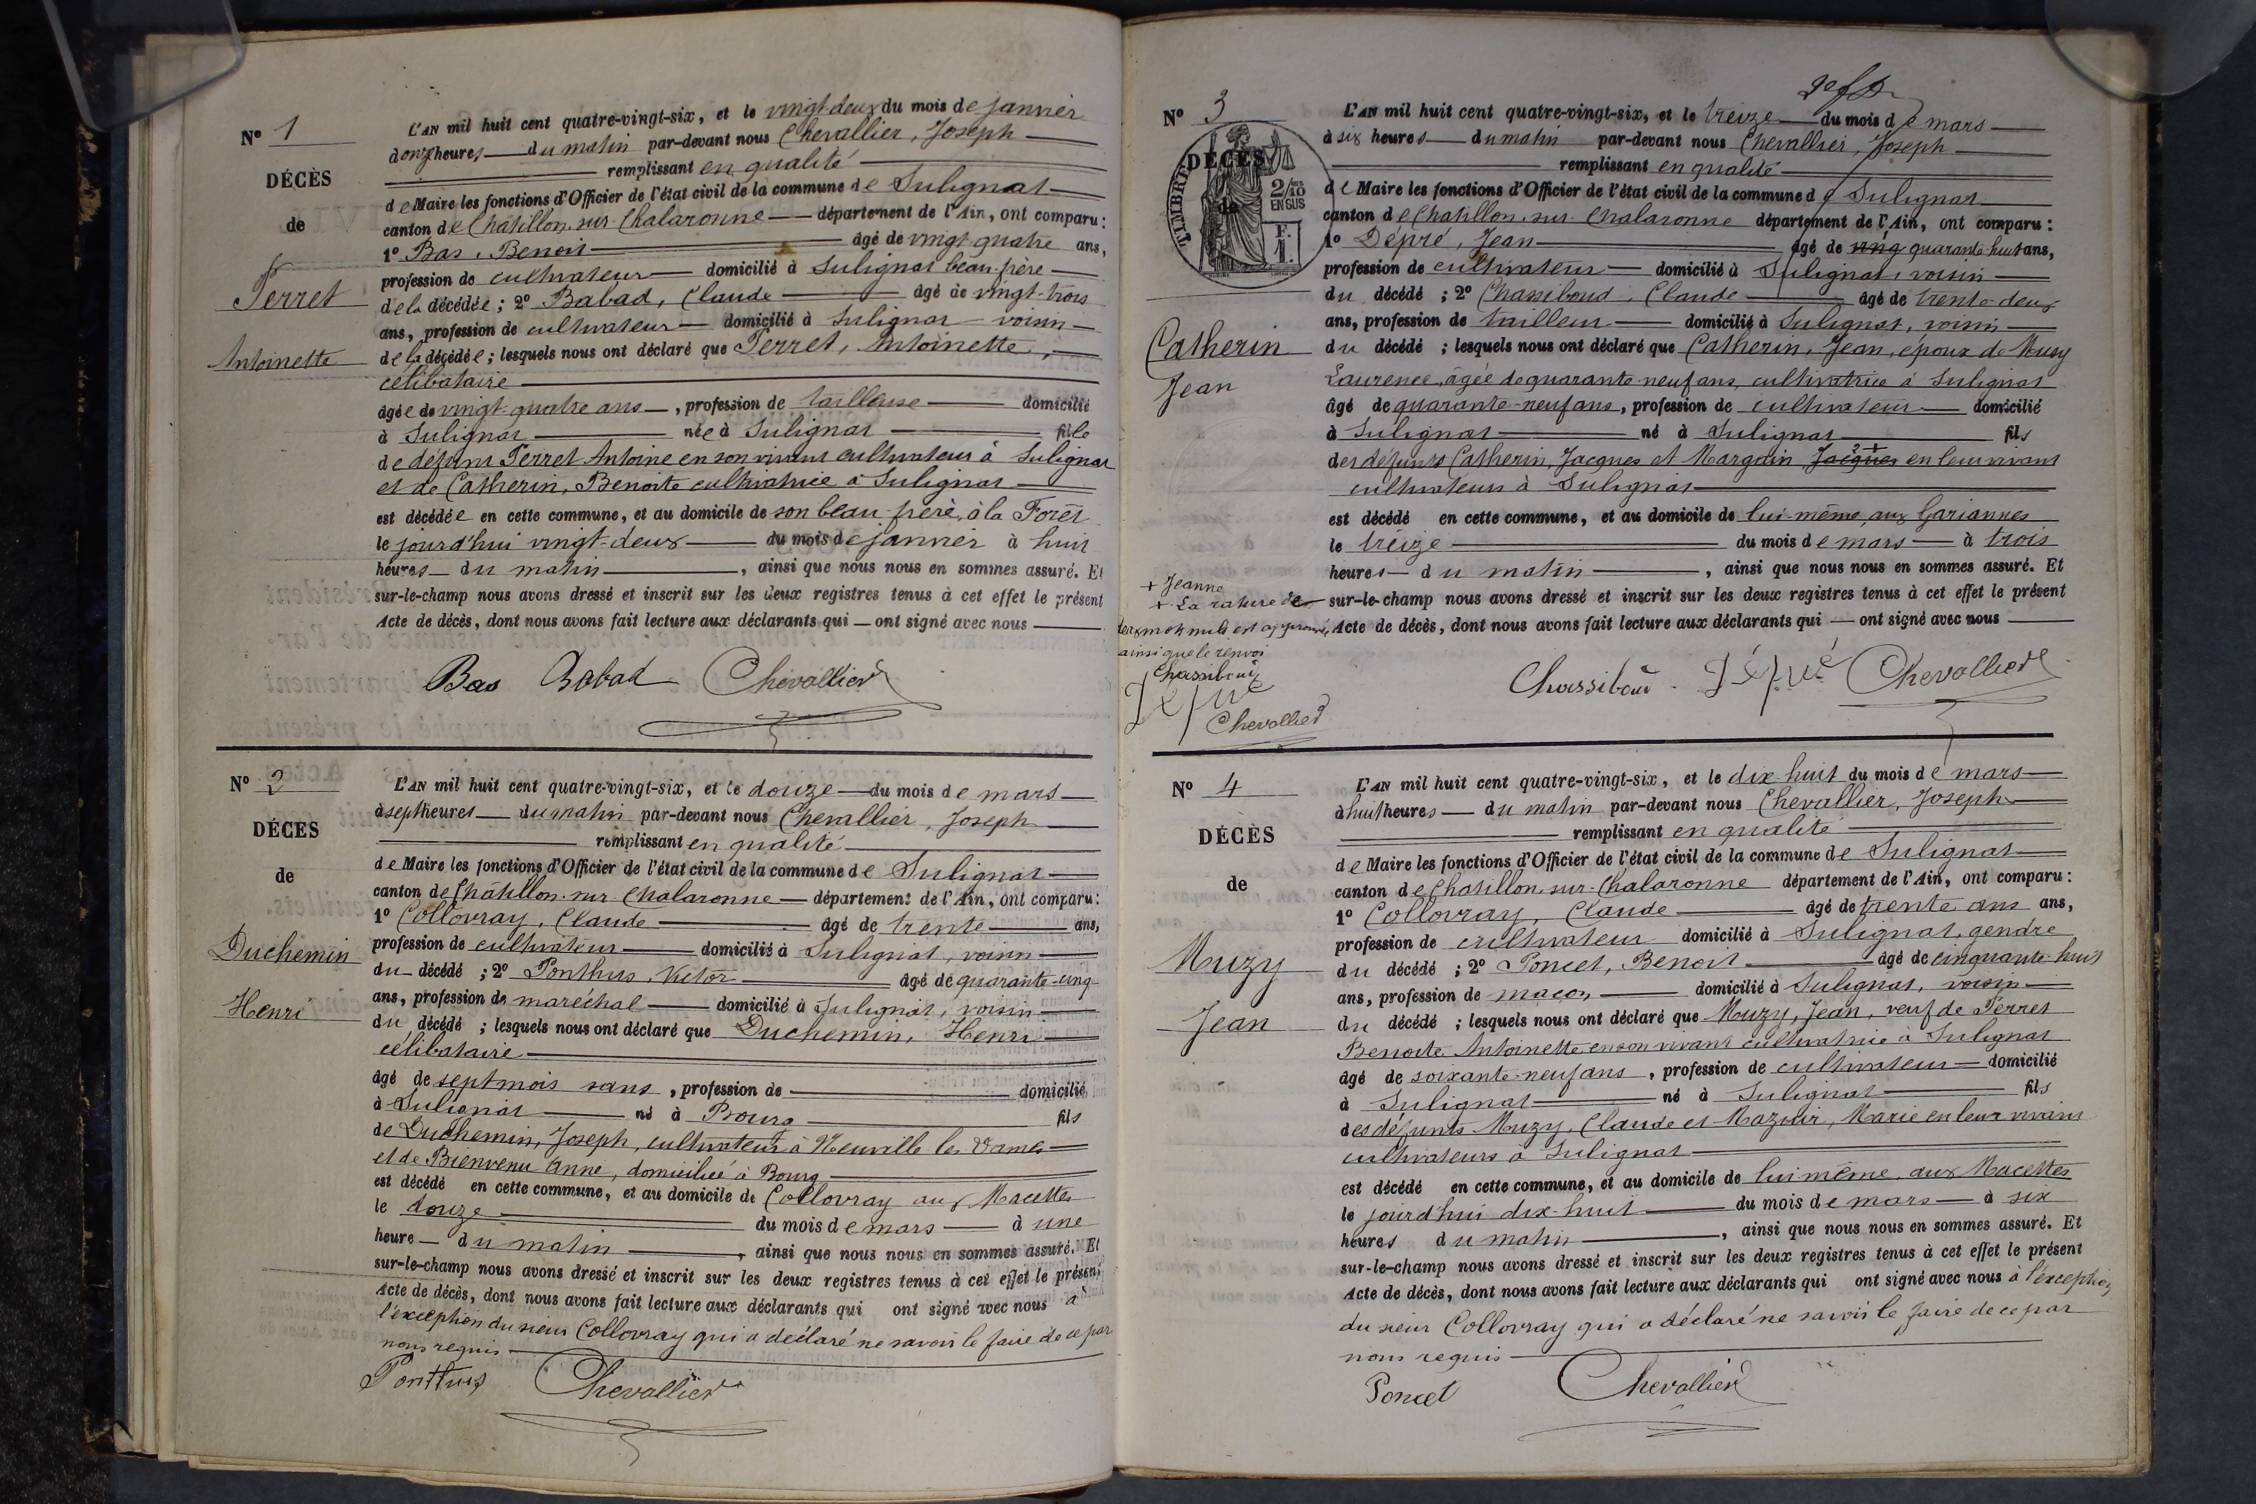 N° 1
DÉCÈS
de
Perret
Antoinette
L'AN mil huit cent quatre-vingt-six, et le vingt-deux du mois de janvier
à onze heures du matin par-devant nous Chevallier, Joseph
remplissant en qualité
de Maire les fonctions d'Officier de l'état civil de la commune de Sulignat
canton de Châtillon-sur-Chalaronne département de l'Ain, ont comparu :
1° Bas, Benoit âgé de vingt-quatre ans,
profession de cultivateur domicilié à Sulignat beau-frère
de la décédée ; 2° Babad, Claude âgé de vingt-trois
ans, profession de cultivateur domicilié à Sulignat voisin
de la décédée ; lesquels nous ont déclaré que Perret, Antoinette,
célibataire
âgée de vingt-quatre ans, profession de tailleuse domicilié
à Sulignat née à Sulignat fille
de défunt Perret Antoine en son vivant cultivateur à Sulignat
et de Catherin, Benoite cultivatrice à Sulignat
est décédée en cette commune, et au domicile de son beau-frère, à la Forêt
le jourd'hui vingt-deux du mois de janvier à huit
heures du matin, ainsi que nous nous en sommes assuré. Et
sur-le-champ nous avons dressé et inscrit sur les deux registres tenus à cet effet le présent
Acte de décès, dont nous avons fait lecture aux déclarants qui ont signé avec nous
Bas Babad Chevallier
N° 2
DÉCÈS
de
Duchemin
Henri
L'AN mil huit cent quatre-vingt-six, et le douze du mois de mars
à sept heures du matin par-devant nous Chevallier, Joseph
remplissant en qualité
de Maire les fonctions d'Officier de l'état civil de la commune de Sulignat
canton de Châtillon-sur-Chalaronne département de l'Ain, ont comparu :
1° Collovray, Claude âgé de trente ans,
profession de cultivateur domicilié à Sulignat, voisin
du décédé ; 2° Ponthus, Victor âgé de quarante-cinq
ans, profession de maréchal domicilié à Sulignat, voisin
du décédé ; lesquels nous ont déclaré que Duchemin, Henri
célibataire
âgé de sept mois sans, profession de domicilié
à Sulignat né à Bourg fils
de Duchemin, Joseph, cultivateur à Neuville les Dames
et de Bienvenu Anne, domiciliée à Bourg
est décédé en cette commune, et au domicile de Collovray aux Macettes
le douze du mois de mars à une
heure du matin, ainsi que nous nous en sommes assuré. Et
sur-le-champ nous avons dressé et inscrit sur les deux registres tenus à cet effet le présent
Acte de décès, dont nous avons fait lecture aux déclarants qui ont signé avec nous à
l'exception du sieur Collovray qui a déclaré ne savoir le faire de ce par
nous requis
Ponthus Chevallier
N° 3
TIMBRE
2/10 EN SUS
F. 1.
DÉCÈS
de
Catherin
Jean
L'AN mil huit cent quatre-vingt-six, et le treize du mois de mars
à six heures du matin par-devant nous Chevallier, Joseph
remplissant en qualité
de Maire les fonctions d'Officier de l'état civil de la commune de Sulignat
canton de Chatillon-sur-Chalaronne département de l'Ain, ont comparu :
1° Dépré, Jean âgé de cinq quarante-huit ans,
profession de cultivateur domicilié à Sulignat, voisin
du décédé ; 2° Chassiboud, Claude âgé de trente-deux
ans, profession de tailleur domicilié à Sulignat, voisin
du décédé ; lesquels nous ont déclaré que Catherin, Jean, époux de Muzy
Laurence, âgée de quarante-neuf ans, cultivatrice à Sulignat
âgé de quarante-neuf ans, profession de cultivateur domicilié
à Sulignat né à Sulignat fils
des défunts Catherin, Jacques et Margain, Jacques en leur vivant
cultivateurs à Sulignat
est décédé en cette commune, et au domicile de lui-même, aux Gariannes
le treize du mois de mars à trois
heures du matin, ainsi que nous nous en sommes assuré. Et
sur-le-champ nous avons dressé et inscrit sur les deux registres tenus à cet effet le présent
Acte de décès, dont nous avons fait lecture aux déclarants qui ont signé avec nous
+ Jeanne
+ La rature de
deux mots nuls est approuvée
ainsi que le renvoi
Chassiboud
Dépré
Chevallier
Chassiboud Dépré Chevallier
N° 4
DÉCÈS
de
Muzy
Jean
L'AN mil huit cent quatre-vingt-six, et le dix-huit du mois de mars
à huit heures du matin par-devant nous Chevallier, Joseph
remplissant en qualité
de Maire les fonctions d'Officier de l'état civil de la commune de Sulignat
canton de Chatillon-sur-Chalaronne département de l'Ain, ont comparu :
1° Collovray, Claude âgé de trente ans ans,
profession de cultivateur domicilié à Sulignat, gendre
du décédé ; 2° Poncet, Benoit âgé de cinquante-huit
ans, profession de maçon domicilié à Sulignat, voisin
du décédé ; lesquels nous ont déclaré que Muzy, Jean, veuf de Perret
Benoite Antoinette en son vivant cultivatrice à Sulignat
âgé de soixante-neuf ans, profession de cultivateur domicilié
à Sulignat né à Sulignat fils
des défunts Muzy, Claude et Mazuir, Marie en leur vivant
cultivateurs à Sulignat
est décédé en cette commune, et au domicile de lui même, aux Macettes
le jourd'hui dix-huit du mois de mars à six
heures du matin, ainsi que nous nous en sommes assuré. Et
sur-le-champ nous avons dressé et inscrit sur les deux registres tenus à cet effet le présent
Acte de décès, dont nous avons fait lecture aux déclarants qui ont signé avec nous à l'exception
du sieur Collovray qui a déclaré ne savoir le faire de ce par
nous requis
Poncet Chevallier